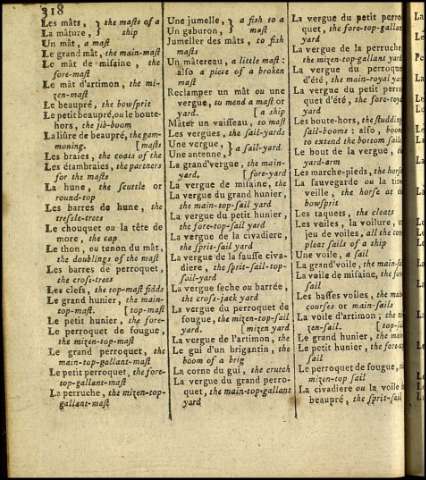 318
Les mâts, } the masts of a
La mâture, } ship
Un mât, a mast
Le grand mât, the main-mast
Le mât de misaine, the
fore-mast
Le mât d'artimon, the mi-
zen-mast
Le beaupré, the bowsprit
Le petit beaupré, ou le boute-
hors, the jib-boom
La liûre de beaupré, the gam-
moning. [masts
Les braies, the coats of the
Les étambraies, the partners
for the masts
La hune, the scuttle or
round-top
Les barres de hune, the
tresle-trees
Le chouquet ou la tête de
more, the cap
Le thon, ou tenon du mât,
the doublings of the mast
Les barres de perroquet,
the cross-trees
Les clefs, the top-mast fidds
Le grand hunier, the main-
top-mast. [top-mast
Le petit hunier, the fore-
Le perroquet de fougue,
the mizen-top-mast
Le grand perroquet, the
main-top-gallant-mast
Le petit perroquet, the fore-
top-gallant-mast
La perruche, the mizen-top-
gallant-mast
Une jumelle, } a fish to a
Un gaburon, } mast
Jumeller des mâts, to fish
masts
Un mâtereau, a little mast:
also a piece of a broken
mast
Reclamper un mât ou une
vergue, to mend a mast or
yard. [a ship
Mâter un vaisseau, to mast
Les vergues, the sail-yards
Une vergue, } a sail-yard.
Une antenne, }
La grand'vergue, the main-
yard. [fore-yard
La vergue de misaine, the
La vergue du grand hunier,
the main-top-sail yard
La vergue du petit hunier,
the fore-top-sail yard
La vergue de la civadiere,
the sprit-sail yard
La vergue de la fausse civa-
diere, the sprit-sail-top-
sail-yard
La vergue seche ou barrée,
the cross-jack yard
La vergue du perroquet de
fougue, the mizen-top-sail
yard. [mizen yard
La vergue de l'artimon, the
Le gui d'un brigantin, the
boom of a brig
La corne du gui, the crutch
La vergue du grand perro-
quet, the main-top-gallant
yard
La vergue du petit perro-
quet, the fore-top-gallant
yard
La vergue de la perruche,
the mizen-top-gallant yard
La vergue du perroquet
d'été, the main-royal yard
La vergue du petit perro-
quet d'été, the fore-royal
yard
Les boute-hors, the studding-
sail-booms: also, booms
to extend the bottom sails
Le bout de la vergue, the
yard-arm
Les marche-pieds, the horses
La sauvegarde ou la tire-
veille, the horse at the
bowsprit
Les taquets, the cleats
Les voiles, la voilure, le
jeu de voiles, all the com-
pleat sails of a ship
Une voile, a sail
La grand'voile, the main-sail
La voile de misaine, the fore-
sail
Les basses voiles, the main
courses or main-sails
La voile d'artimon, the mi-
zen-sail. [top-sail
Le grand hunier, the main-
Le petit hunier, the fore-top-
sail
Le perroquet de fougue, the
mizen-top sail
La civadiere ou la voile de
beaupré, the sprit-sail